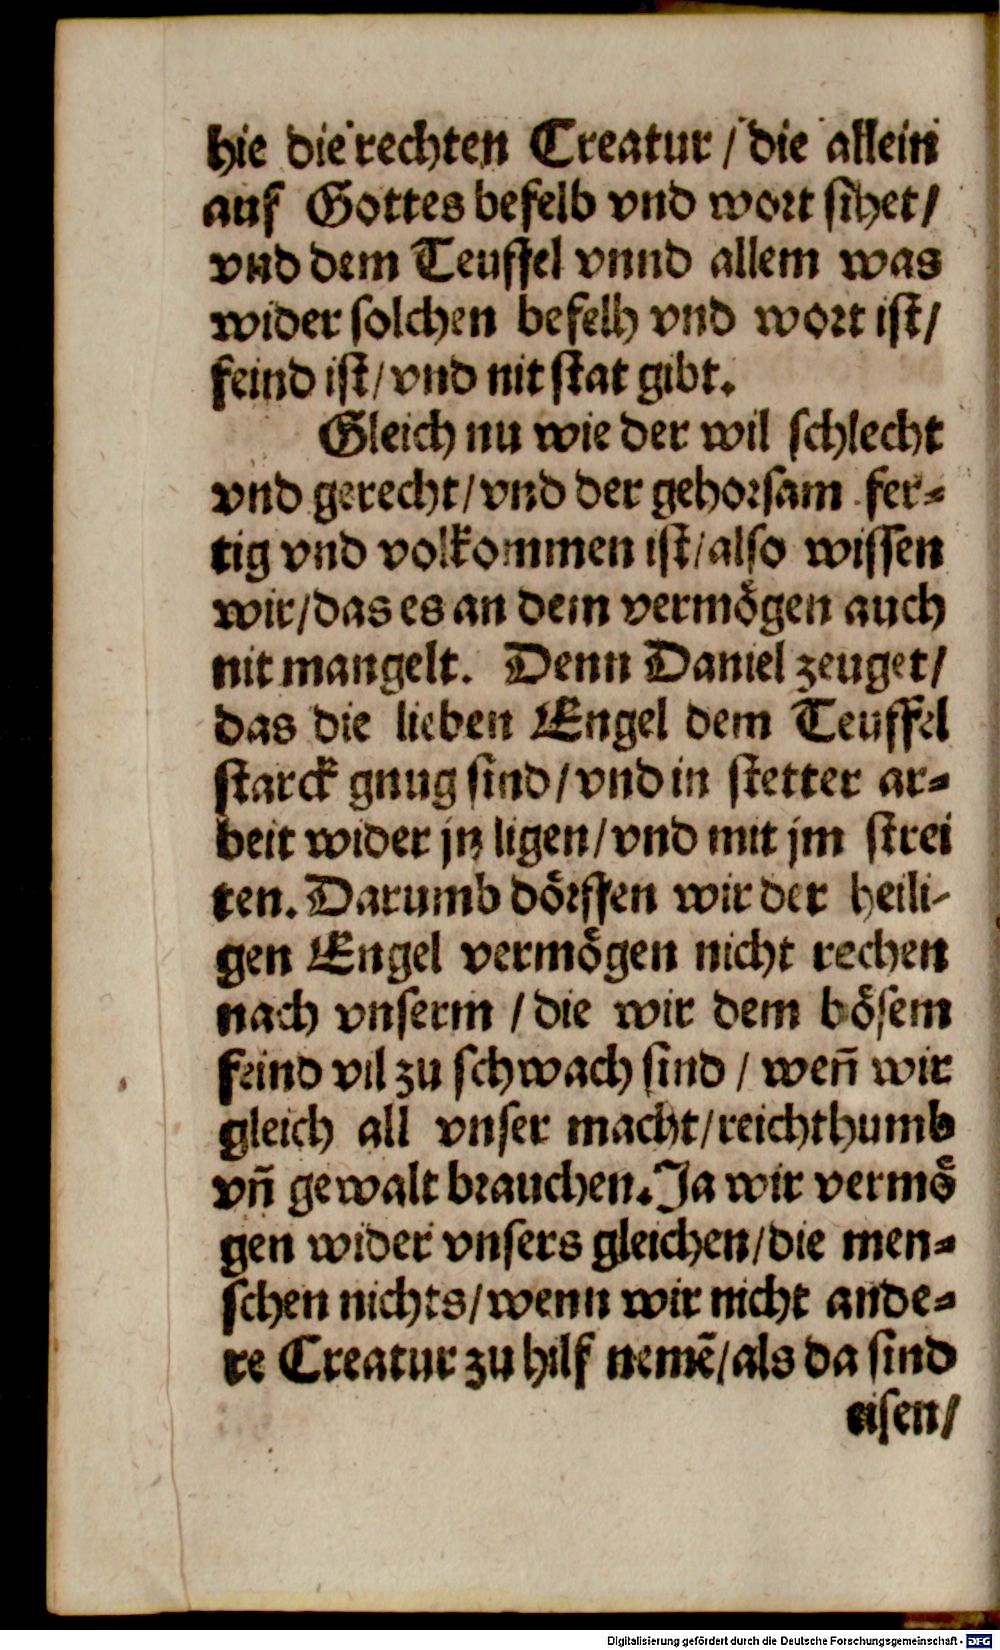 hie die rechten Creatur / die allein
auf Gottes befelb vnd wort sihet /
vnd dem Teuffel vnnd allem was
wider solchen befelh vnd wort ist /
feind ist / vnd nit stat gibt.
Gleich nu wie der wil schlecht
vnd gerecht / vnd der gehorsam fer-
tig vnd volkommen ist / also wissen
wir / das es an dem vermögen auch
nit mangelt. Denn Daniel zeuget /
das die lieben Engel dem Teuffel
starck gnug sind / vnd in stetter ar-
beit wider jn ligen / vnd mit jm strei
ten. Darumb dörffen wir der heili-
gen Engel vermögen nicht rechen
nach vnserm / die wir dem bösem
feind vil zu schwach sind / weñ wir
gleich all vnser macht / reichthumb
vñ gewalt brauchen. Ja wir vermö
gen wider vnsers gleichen / die men-
schen nichts / wenn wir nicht ande-
re Creatur zu hilf nemẽ / als da sind
eisen /
Digitalisierung gefördert durch die Deutsche Forschungsgemeinschaft - DFG